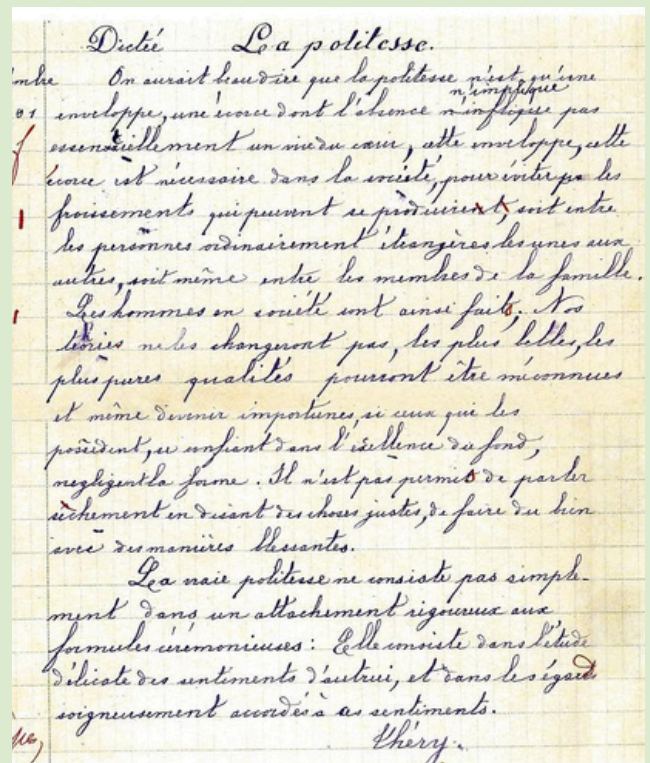 Dictée La politesse.
mbre On aurait beau dire que la politesse n'est qu'une
n'implique
01 enveloppe, une écorce dont l'absence n'inflique pas
essentiellement un vice du cœur, cette enveloppe, cette
écorce est nécessaire dans la société, pour éviter les
froissements qui peuvent se produirent, soit entre
les personnes ordinairement étrangères les unes aux
autres, soit même entre les membres de la famille.
Les hommes en société sont ainsi faits. Nos
ne les changeront pas, les plus belles, les
plus pures qualités pourront être méconnues
et même devenir importunes, si ceux qui les
possèdent, se confiant dans l'exellence du fond,
negligent la forme. Il n'est pas permis de parler
sèchement en disant des choses justes, de faire du bien
avec des manières blessantes.
La vraie politesse ne consiste pas simple-
ment dans un attachement rigoureux aux
formules cérémonieuses : Elle consiste dans l'étude
délicate des sentiments d'autrui, et dans les égards
soigneusement accordés à ces sentiments.
Théry.